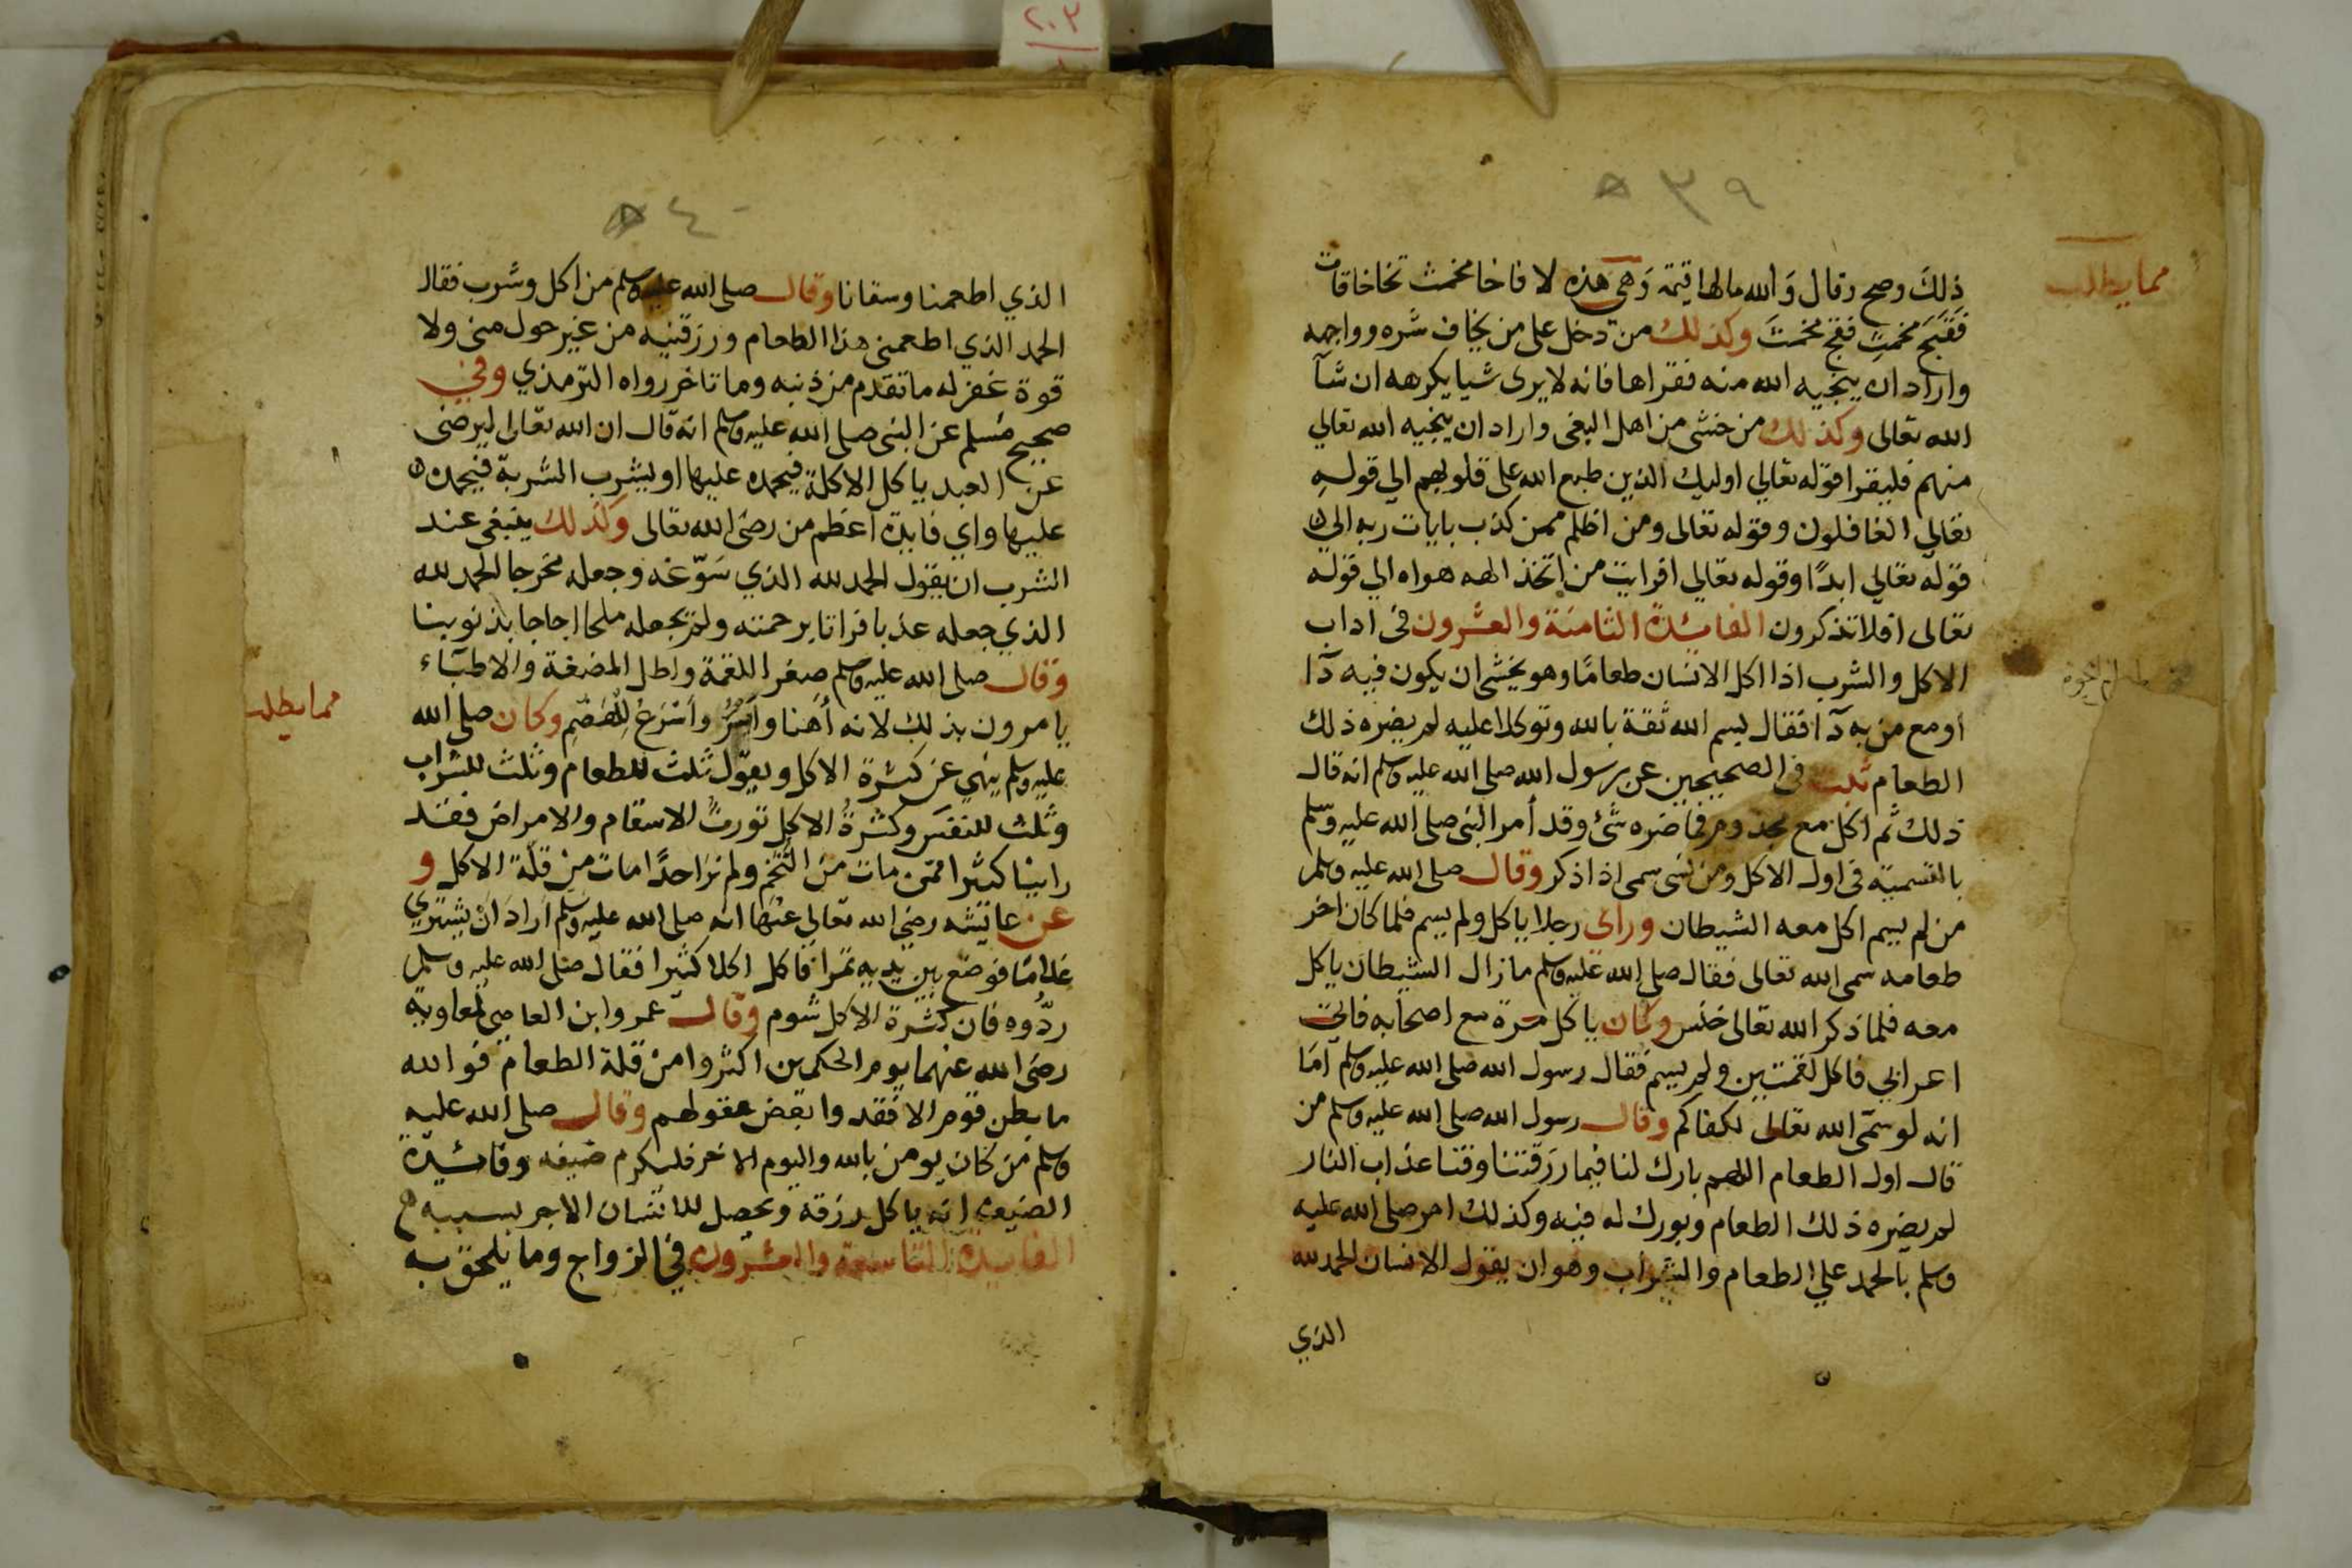 ٢٠٣
٣٩
مما يطلب
ذلك وصح وقال والله مالها قيمة وهى هذه لا فاخا مخمت تخاخافات
فقبح مخمت فقج مخمت وكذلك من دخل على من يخاف شره وواجهه
واراد ان ينجيه الله منه فقراها فانه لا يرى شيا يكرهه ان شآ
الله تعالى وكذلك من خشى من اهل البغى واراد ان ينجيه الله تعالي
منهم فليقرا قوله تعالي اوليك الذين طبع الله على قلوبهم الي قوله
تعالي الغافلون وقوله تعالى ومن اظلم ممن كذب بايات ربه الي
قوله تعالي ابدًا وقوله تعالي افرايت من اتخذ الهه هواه الي قوله
تعالى افلا تذكرون الفائدة الثامنة والعشرون فى اداب
الاكل والشرب اذا اكل الانسان طعامًا وهو يخشى ان يكون فيه دآ ا
او مع من به دآ افقال بسم الله ثقة بالله وتوكلا عليه لم يضره ذلك
الطعام ثلث فى الصحيحين عن رسول الله صلى الله عليه وسلم انه قال
ذلك ثم اكل مع مجذوم فما ضره شئ وقد أمر النبى صلى الله عليه وسلم
بالتسمية فى اول الاكل ومن نسى سمى اذ اذكر وقال صلى الله عليه وسلم
من لم يسم اكل معه الشيطان وراى رجلا ياكل ولم يسم فلما كان اخر
طعامه سمى الله تعالى فقال صلى الله عليه وسلم ما زال الشيطان ياكل
معه فلما ذكر الله تعالى خنس وكان ياكل مرة مع اصحابه فاتى
اعرابي فاكل لقمتين ولم يسم فقال رسول الله صلى الله عليه وسلم اما
انه لو سمى الله تعالى لكفاكم وقال رسول الله صلى الله عليه وسلم من
قال اول الطعام اللهم بارك لنا فيما رزقتنا وقنا عذاب النار
لم يضره ذلك الطعام وبورك له فيه وكذلك امر صلى الله عليه
وسلم بالحمد علي الطعام والشراب وهو ان يقول الانسان الحمد لله
الذي
٤٠
الذي اطعمنا وسقانا وقال صلى الله عليه وسلم من اكل وشرب فقال
الحمد الذي اطعمنى هذا الطعام ورزقنيه من غير حول منى ولا
قوة غفر له ما تقدم من ذنبه وما تاخر رواه الترمذي وفي
صحيح مسلم عن النبى صلى الله عليه وسلم انه قال ان الله تعالى ليرضى
عن العبد ياكل الاكلة فيحمده عليها او يشرب الشربة فيحمده
عليها واي فايدة اعظم من رضى الله تعالى وكذلك ينبغى عند
الشرب ان يقول الحمد لله الذي سوّغه وجعله مخرجا الحمد لله
الذي جعله عذبا فراتا برحمته ولم يجعله ملحا اجاجا بذنوبنا
وقال صلى الله عليه وسلم صغر اللقمة واطل المضغة والاطبآء
مما يطلب
يامرون بذلك لانه أهنا وأمرُ وأسرع للهضم وكان صلى الله
عليه وسلم ينهي عن كثرة الاكل ويقول ثلث للطعام وثلث للشراب
وثلث للنفس وكثرة الاكل تورث الاسقام والامراض فقد
راينا كثيرا ممن مات من التخم ولم نر احدًا مات من قلة الاكل و
عن عايشه رضى الله تعالي عنها انه صلى الله عليه وسلم اراد ان يشتري
غلامًا فوضع بين يديه تمرا فاكل اكلا كثيرا فقال صلى الله عليه وسلم
ردُّوه فان كثرة الاكل شوم وقال عمرو ابن العاصى لمعاوية
رضى الله عنهما يوم الحكمين اكثروا من قلة الطعام فوالله
ما بطن قوم الا فقدوا بعض عقولهم وقال صلى الله عليه
وسلم من كان يومن بالله واليوم الاخر فليكرم ضيفه وفائدة
الضيف انه ياكل رزقه ويحصل للانسان الاجر بسببه
الفايدة التاسعة والعشرون في الزواج وما يلحق به